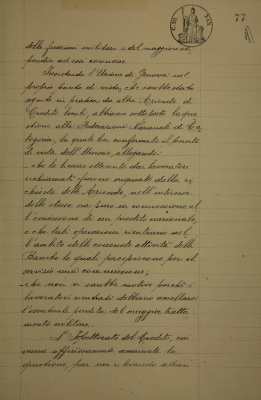 77
delle funzioni militari e del maggior com
penso ad esse connesso
Insistendo l'Unione di Genova nel
proprio punto di vista, che sarebbe stato
agito in pratica da altre Aziende di
Credito locali, abbiamo sottoposto la que
stione alla Federazione Nazionale di Ca
tegoria, la quale ha confermato il punto
di vista dell'Unione, allegando:
- che le licenze ottenute dai lavoratori
richiamati furono originate dalla ri
chiesta delle Aziende, nell'interesse
delle stesse sia pure in connessione al
l'emissione di un prestito nazionale,
e che tali operazioni rientrano nel
l'ambito delle consuete attività delle
Banche le quali percepiscono per il
servizio una commissione;
che non vi sarebbe motivo perchè i
lavoratori
debbano
l'eventuale perdita del maggior tratta
mento militare.
L'Ispettorato del Credito, cui
venne ufficiosamente
la
questione, pur non